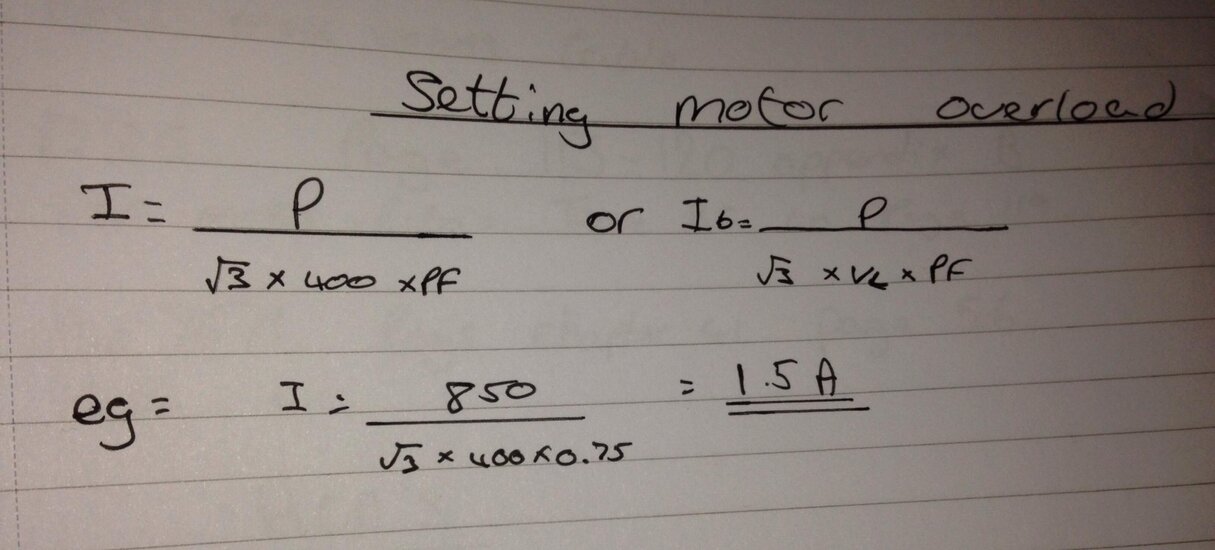 Setting motor overload
I = P / √3 × 400 × PF or Ib = P / √3 × VL × PF
eg = I = 850 / √3 × 400 × 0.75 = 1.5 A